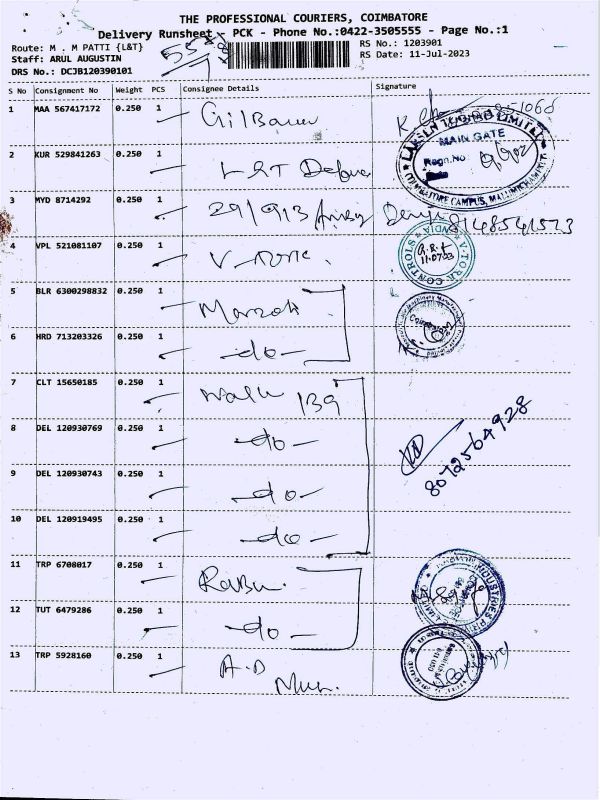 THE PROFESSIONAL COURIERS, COIMBATORE
Delivery Runsheet - PCK - Phone No.:0422-3505555 - Page No.:1
Route: M . M PATTI {L&T}
RS No.: 1203901
Staff: ARUL AUGUSTIN
RS Date: 11-Jul-2023
DRS No.: DCJB120390101
S No Consignment No Weight PCS Consignee Details Signature
1 MAA 567417172 0.250 1
LARSEN TOUBRO LIMITED
MAIN GATE
Regn.No
COIMBATORE CAMPUS,
2 KUR 529841263 0.250 1 L&T
3 MYD 8714292 0.250 1 29/913 8148541573
4 VPL 521081107 0.250 1 V-
V-TORR CONTROLS INDIA
5 BLR 6300298832 0.250 1
6 HRD 713203326 0.250 1 -do-
7 CLT 15650185 0.250 1 139
8 DEL 120930769 0.250 1 -do-
8072564928
9 DEL 120930743 0.250 1 -do-
10 DEL 120919495 0.250 1 -do-
11 TRP 6708017 0.250 1
12 TUT 6479286 0.250 1 -do-
13 TRP 5928160 0.250 1 A.D